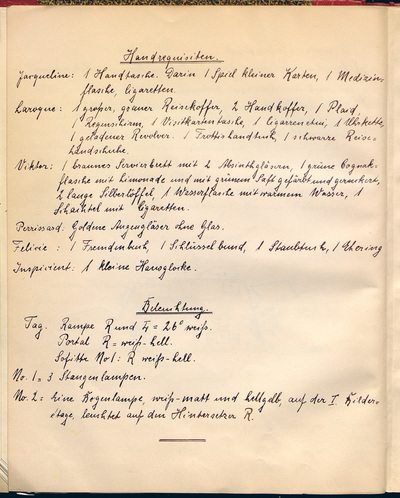 Handrequisiten.
Jacqueline: 1 Handtasche. Darin 1 Spiel kleiner Karten, 1 Medizin-
flasche, Cigaretten.
Laroque: 1 großer, grauer Reisekoffer, 2 Handkoffer, 1 Plaid,
Regenschirm, 1 Visitkartentasche, 1 Cigarrenetui, 1 Uhrkette,
1 geladener Revolver. 1 Frottierhandtuch, 1 schwarze Reise-
handschuhe.
Viktor: 1 braunes Servierbrett mit 2 Absinthgläsern, 1 grüne Cognak-
flasche mit Limonade und mit grünem Saft gefärbt und gezuckert,
2 lange Silberlöffel, 1 Wasserflasche mit warmem Wasser, 1
Schachtel mit Cigaretten.
Perrissard: Goldene Augengläser ohne Glas.
Felicie: 1 Fremdenbuch, 1 Schlüsselbund, 1 Staubtuch, 1 Ehering
Inspicient: 1 kleine Hausglocke.
Beleuchtung.
Tag. Rampe R und L = 26° weiß.
Portal R = weiß-hell.
Sofitte No 1: R weiß-hell.
No. 1 = 3 Stangenlampen.
No. 2 = Eine Bogenlampe, weiß-matt und hellgelb, auf der I. Bilder-
etage, leuchtet auf den Hintersetzer R.